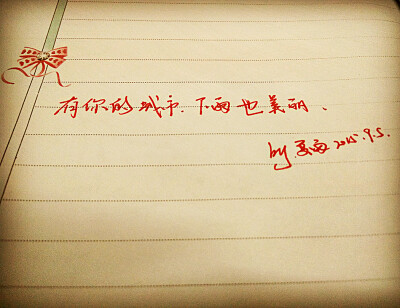 有你的城市.下雨也美丽、
by.夏雨 2015.9.5.